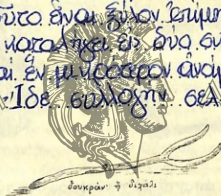 οῦτο εἶναι ξύλον ἐπίμη
καταλήγει εἰς δύο συ
αἱ ἐν μικρότερον ἀνομ
Ἰδε συλλογὴν σελ
δουκράν' ἢ διχάλι